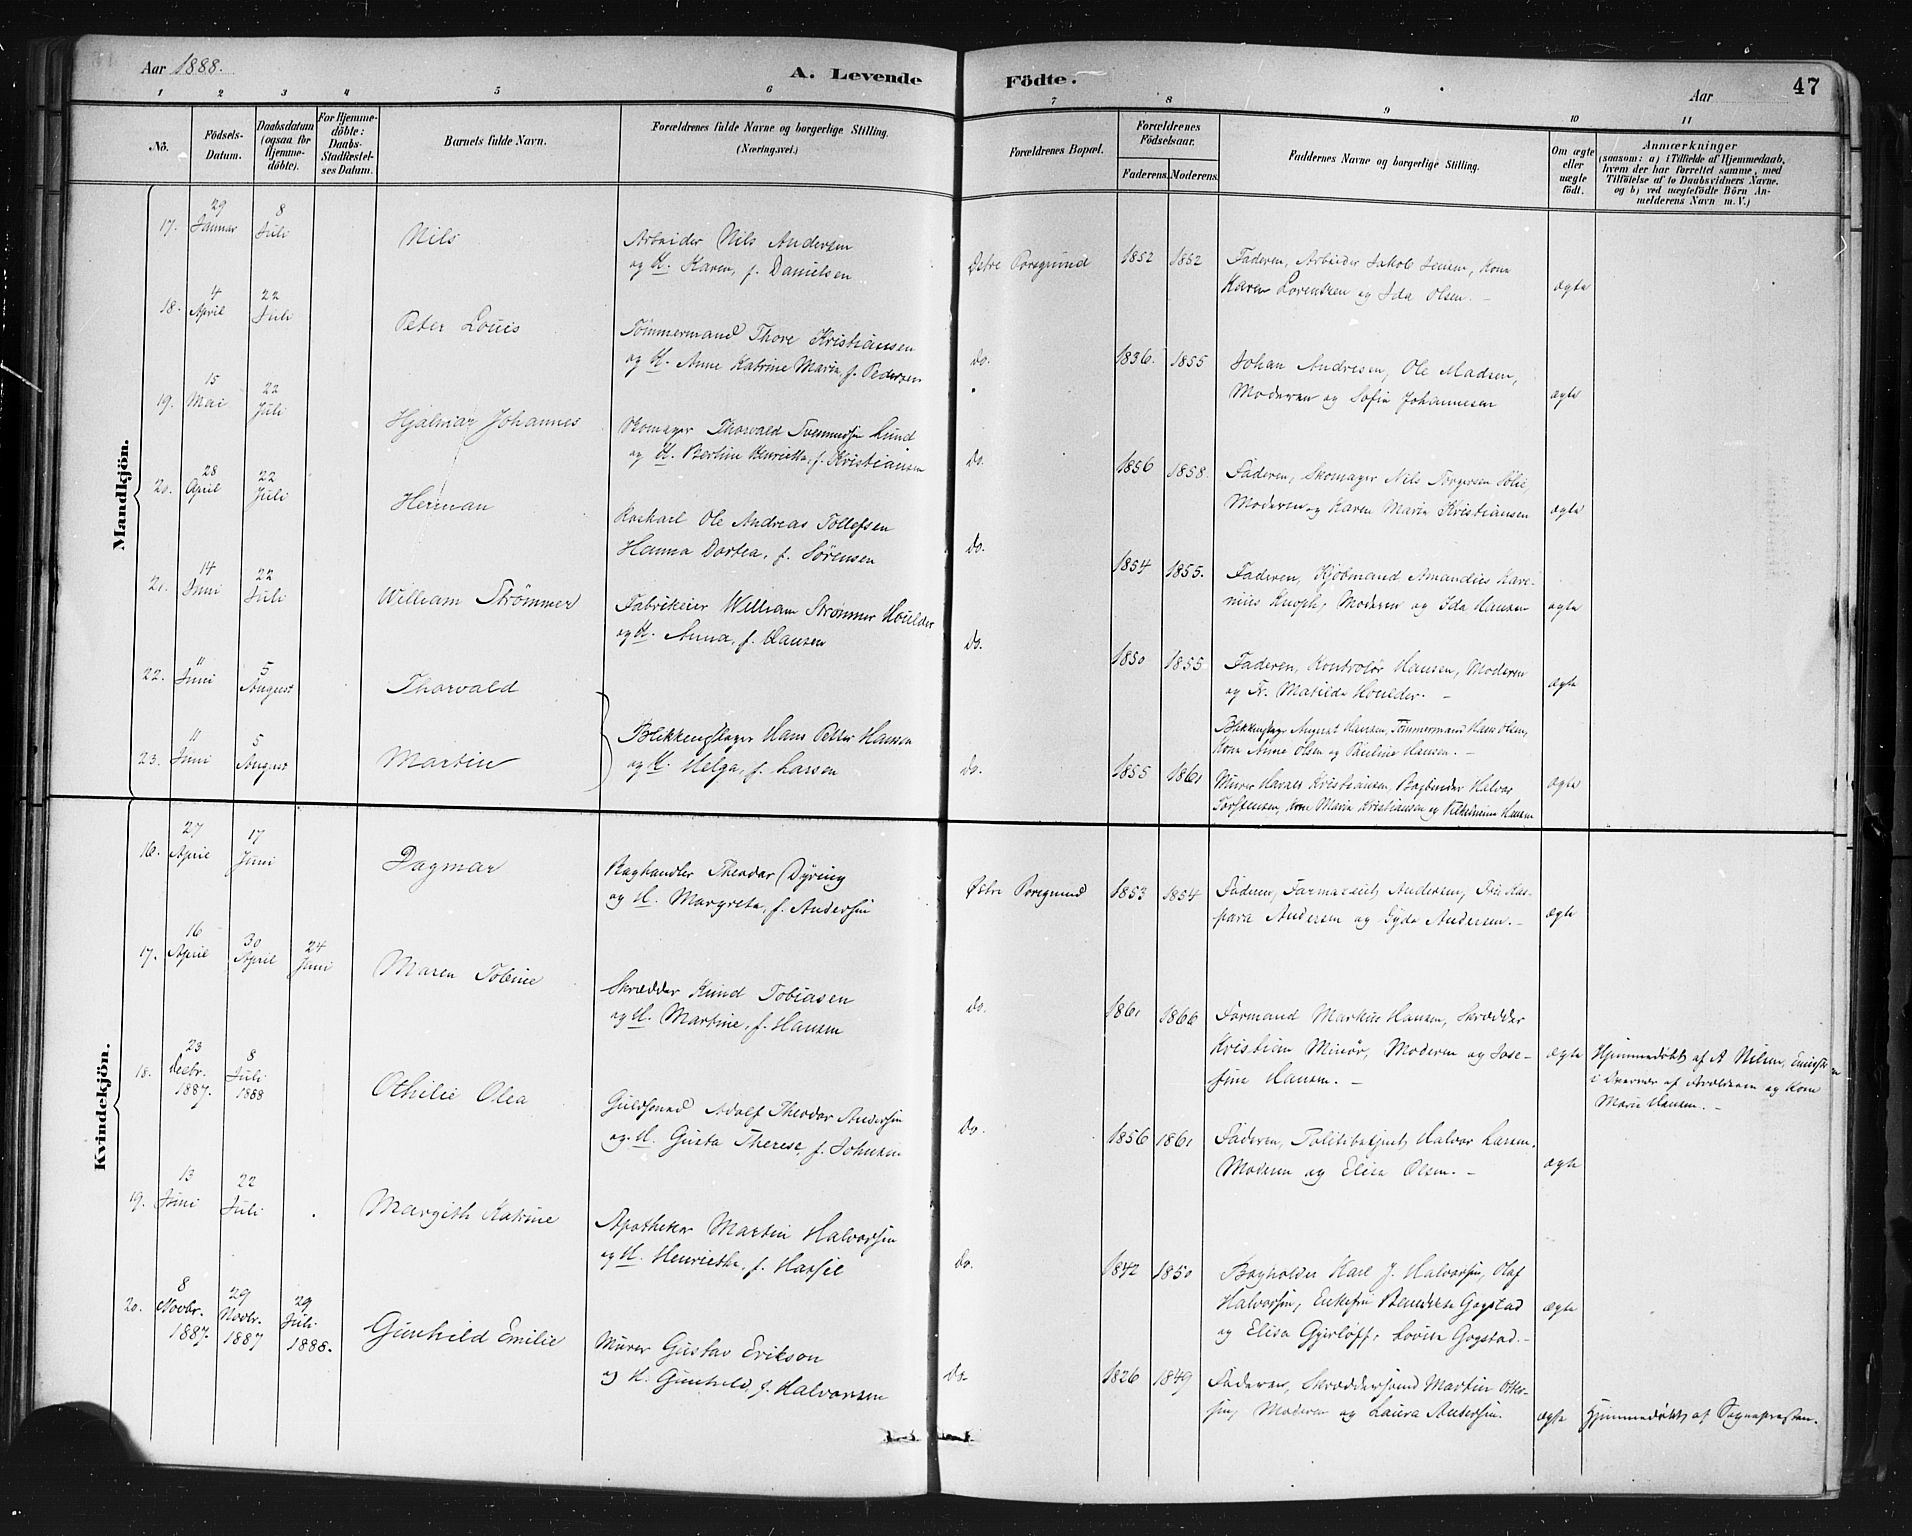 Aar 1888.
A. Levende
Födte.
Aar
47
1 2 3 4 5 6 7 8 9 10 11
Nö.
Födsels-Datum.
Daabsdatum (ogsaa for Hjemme-döbte).
For Hjemme-döbte: Daabs-Stadfæstel-ses Datum.
Barnets fulde Navn.
Forældrenes fulde Navne og borgerlige Stilling. (Næringsvei.)
Forældrenes Bopæl.
Forældrenes Födselsaar.
Faderens. Moderens.
Faddernes Navne og borgerlige Stilling.
Om ægte eller uægte födt.
Anmærkninger
(saasom: a) i Tilfælde af Hjemmedaab, hvem der har forrettet samme, med Tilföielse af to Daabsvidners Navne, og b) ved uægtefödte Börn An-melderens Navn m. V.)
Mandkjön.
17. 29 Januar 8 Juli Nils
Arbeider Nils Andersen
og H. Karen, f. Danielsen
Østre Porsgrund 1852 1852
Faderen, Arbeider Jakob Jensen, Kone
Karen Lorentsen og Ida Olsen. –
ægte
18. 4 April 22 Juli Peter Louis
Tømmermand Thore Kristiansen
og H. Anne Katrine Marie, f. Pedersen
do. 1836. 1855
Johan Andresen, Ole Madsen,
Moderen og Sofie Johannesen
ægte
19. 15 Mai 22 Juli Hjalmar Johannes
Skomager Thorvald Svennedsen Lund
og H. Bertine Henriette, f. Kristiansen
do. 1856 1858.
Faderen, Skomager Nils Torgersen Solie,
Moderen og Karen Marie Kristiansen
ægte
20. 28 April 22 Juli Herman
Kaskarl Ole Andreas Tollefsen
Hanna Dortea, f. Sørensen
do. 1854 1855.
Faderen, Kjöbmand Amandus Kare-
nius Knoph, Moderen og Ida Hansen
ægte
21. 14 Juni 22 Juli William Strømmer
Fabrikeier William Strømmer Houlder
og H. Anna, f. Hansen
do. 1850 1855.
Faderen, Kontrolør Hansen, Moderen
og Fr. Matilde Houlder. –
ægte
22. 11 Juni 5 August Thorvald
23. 11 Juni 5 August Martin
Blikkenslager Hans Petter Hansen
og H. Helga, f. Larsen
do. 1855 1861
Blikkenslager August Hansen, Tømmermand Hans Olsen,
Kone Anne Olsen og Pauline Hansen. –
Murer Harald Kristiansen, Bogbinder Halvor
Torstensen, Kone Marie Kristiansen og Vilhelmine Hansen
ægte
Kvindekjön.
16. 27 April 17 Juni Dagmar
Baghandler Theodor Dyring
og H. Margrete, f. Andersen
Østre Porsgrund 1853 1854
Faderen, Farmaceut Andersen, Frk Kas-
para Andersen og Gyda Andersen. –
ægte
17. 16 April 30 April 24 Juni Maren Tobine
Skrædder Knud Tobiasen
og H. Martine, f. Hansen
do. 1861 1866
Formand Markus Hansen, Skrædder
Kristian Minör, Moderen og Jose-
fine Hansen. –
ægte
Hjemmedøbt af A Nilsen,
i Overvær af Forældrene og Kone
Marie Hansen. –
18. 23 Decbr. 1887. 8 Juli 1888 Othilie Olea
Guldsmed Adolf Theodor Andersen
og H. Gusta Therese, f. Johnsen
do. 1856 1861
Faderen, Politibetjent Halvor Larsen.
Moderen og Elise Olsen. –
ægte
19. 13 Juni 22 Juli Margith Katrine
Apotheker Martin Halvorsen
og H. Henriette, f. Hassel
do. 1842 1850
Bogholder Karl J. Halvorsen, Olaf
Halvorsen, Enkefru Benedikte Gogstad
og Elisa Gjerløff, Lovise Gogstad. –
ægte
20. 8 Novbr. 1887. 29 Novbr. 1887 29 Juli 1888. Gunhild Emilie
Murer Gustav Erikson
og H. Gunhild, f. Halvorsen
do. 1826 1849
Faderen, Skræddersvend Martin Otter-
sen, Moderen og Laura Andersen.
ægte
Hjemmedøbt af Sognepresten.